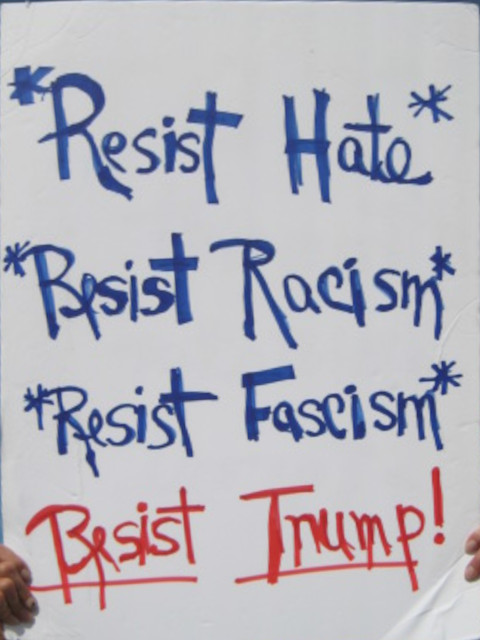 *Resist Hate*
*Resist Racism*
*Resist Fascism*
Resist Trump!